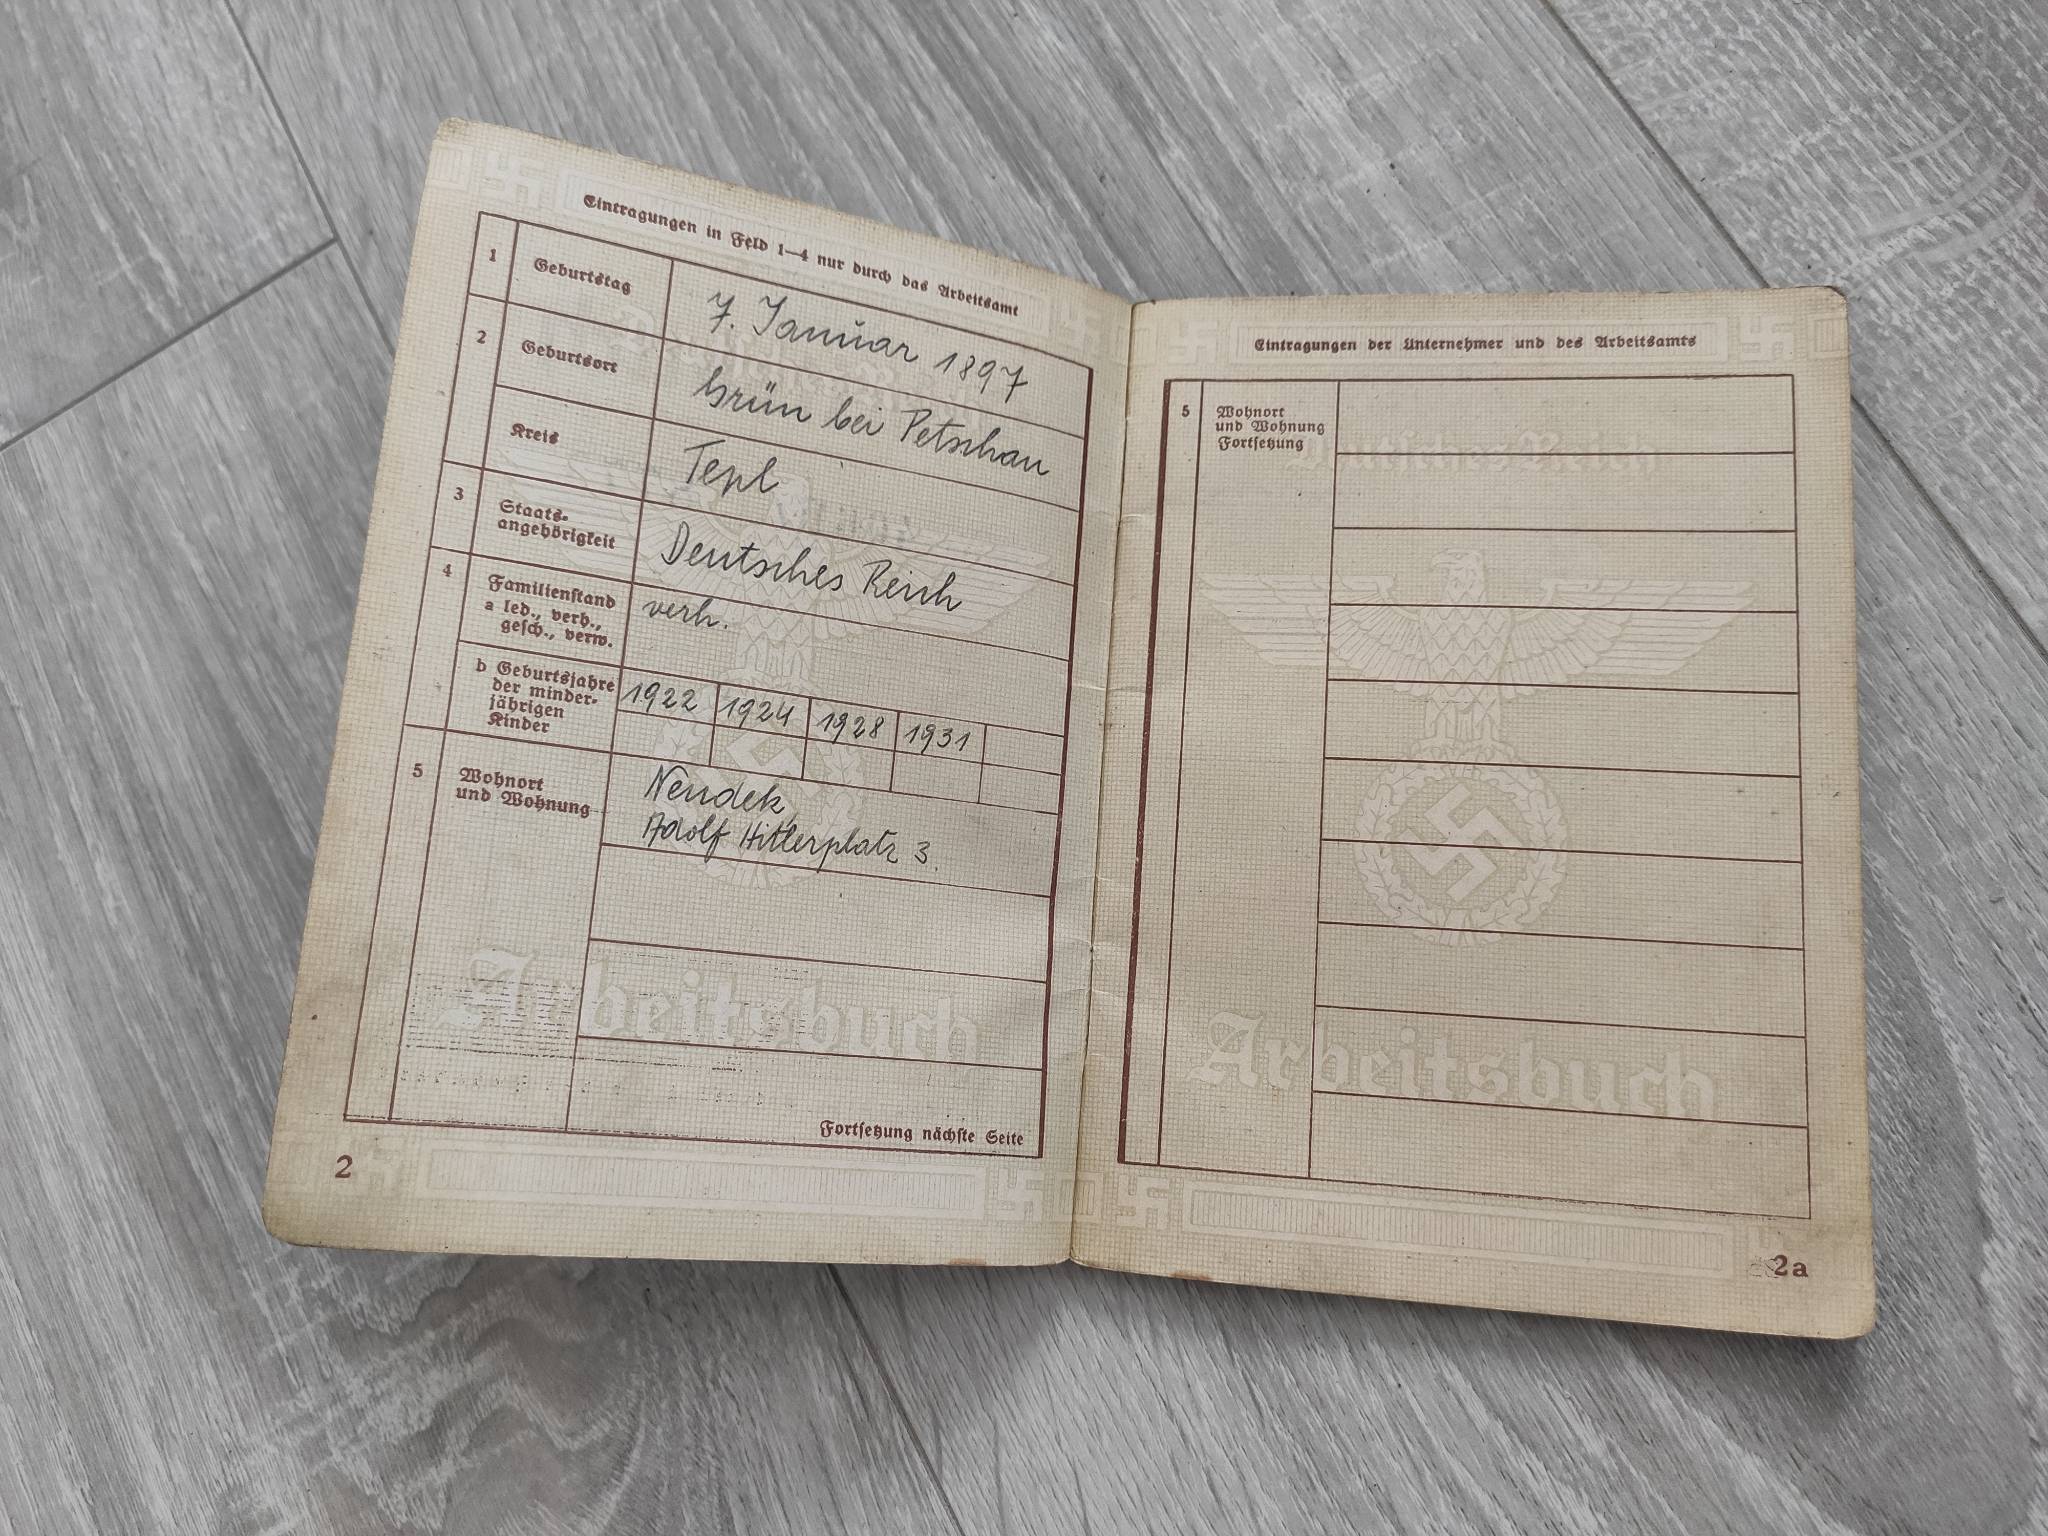 Eintragungen in Feld 1—4 nur durch das Arbeitsamt
1 Geburtstag 7. Januar 1897
2 Geburtsort Grün bei Petschau
Kreis Tepl
3 Staats-
angehörigkeit Deutsches Reich
4 Familienstand
a led., verh.,
gesch., verw. verh.
b Geburtsjahre
der minder-
jährigen
Kinder 1922 1924 1928 1931
5 Wohnort
und Wohnung Neudek,
Adolf Hitlerplatz 3.
Arbeitsbuch
Fortsetzung nächste Seite
2
Eintragungen der Unternehmer und des Arbeitsamts
5 Wohnort
und Wohnung
Fortsetzung
Deutsches Reich
Arbeitsbuch
2a